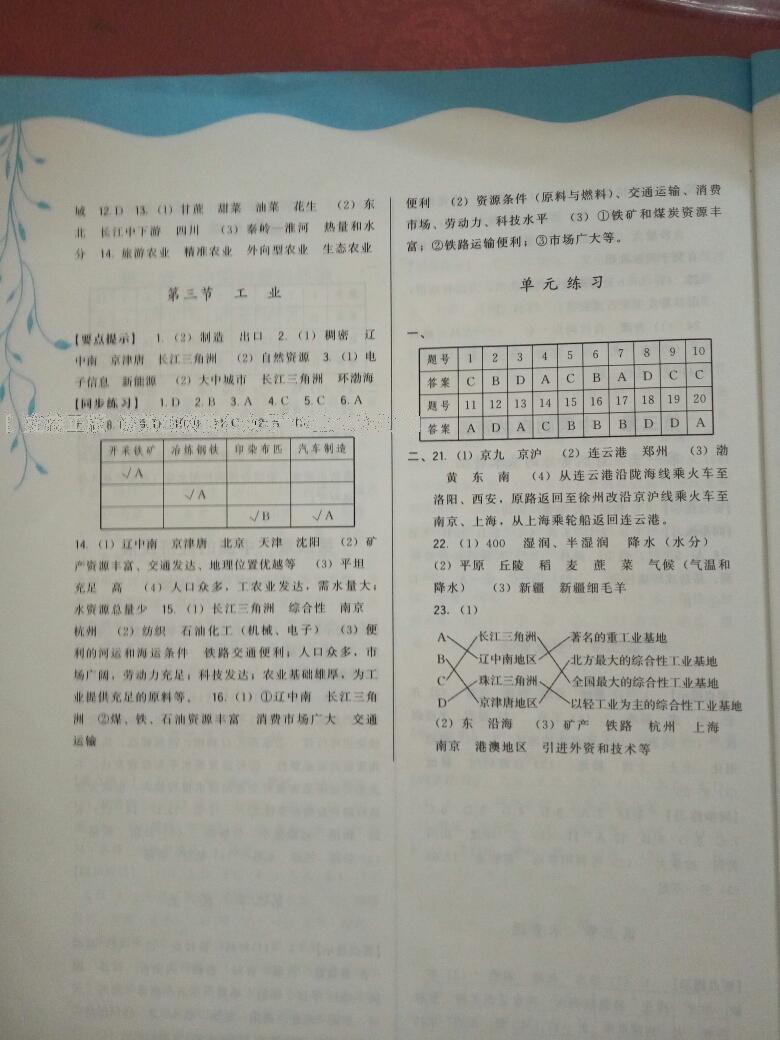 域 12.D 13.(1)甘蔗 甜菜 油菜 花生 (2)东
北 长江中下游 四川 (3)秦岭—淮河 热量和水
分 14.旅游农业 精准农业 外向型农业 生态农业
第三节 工 业
【要点提示】 1.(2)制造 出口 2.(1)稠密 辽
中南 京津唐 长江三角洲 (2)自然资源 3.(1)电
子信息 新能源 (2)大中城市 长江三角洲 环渤海
【同步练习】 1.D 2.B 3.A 4.C 5.C 6.A
开采铁矿 冶炼钢铁 印染布匹 汽车制造
√A
√A
√B √A
14.(1)辽中南 京津唐 北京 天津 沈阳 (2)矿
产资源丰富、交通发达、地理位置优越等 (3)平坦
充足 高 (4)人口众多,工农业发达,需水量大;
水资源总量少 15.(1)长江三角洲 综合性 南京
杭州 (2)纺织 石油化工(机械、电子) (3)便
利的河运和海运条件 铁路交通便利;人口众多,市
场广阔,劳动力充足;科技发达;农业基础雄厚,为工
业提供充足的原料等。 16.(1)①辽中南 长江三角
洲 ②煤、铁、石油资源丰富 消费市场广大 交通
运输
便利 (2)资源条件(原料与燃料)、交通运输、消费
市场、劳动力、科技水平 (3)①铁矿和煤炭资源丰
富;②铁路运输便利;③市场广大等。
单元练习
一、
题号 1 2 3 4 5 6 7 8 9 10
答案 C B D A C B A D C C
题号 11 12 13 14 15 16 17 18 19 20
答案 A D A C B B B D D A
二、21.(1)京九 京沪 (2)连云港 郑州 (3)渤
黄 东 南 (4)从连云港沿陇海线乘火车至
洛阳、西安,原路返回至徐州改沿京沪线乘火车至
南京、上海,从上海乘轮船返回连云港。
22.(1)400 湿润、半湿润 降水(水分)
(2)平原 丘陵 稻 麦 蔗 菜 气候(气温和
降水) (3)新疆 新疆细毛羊
23.(1)
A 长江三角洲 著名的重工业基地
B 辽中南地区 北方最大的综合性工业基地
C 珠江三角洲 全国最大的综合性工业基地
D 京津唐地区 以轻工业为主的综合性工业基地
(2)东 沿海 (3)矿产 铁路 杭州 上海
南京 港澳地区 引进外资和技术等